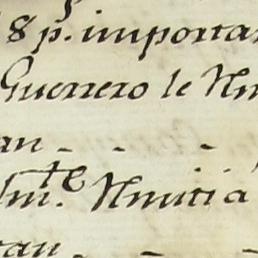 8 p. importan
Guerrero le Rm
an - - -
lm.te Rmitia
tan - - -